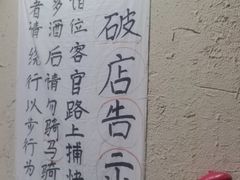 破店告示
位客官路上捕快
多酒后请勿骑马骑
者请绕行以步行为